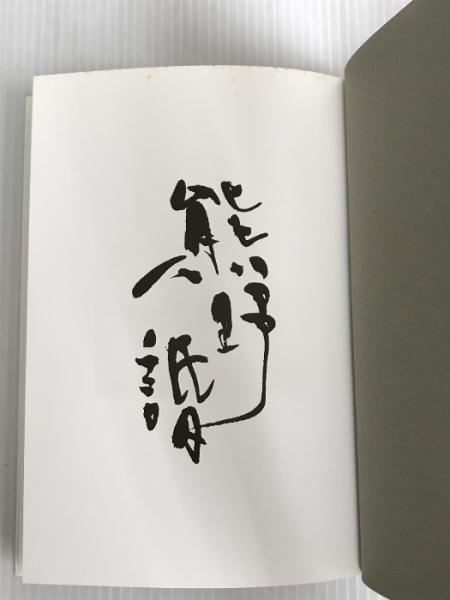 熊野詣